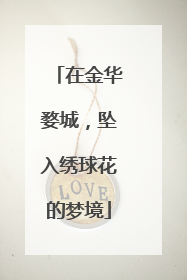 「在金华
婺城，坠
入绣球花
的梦境」
LOVE